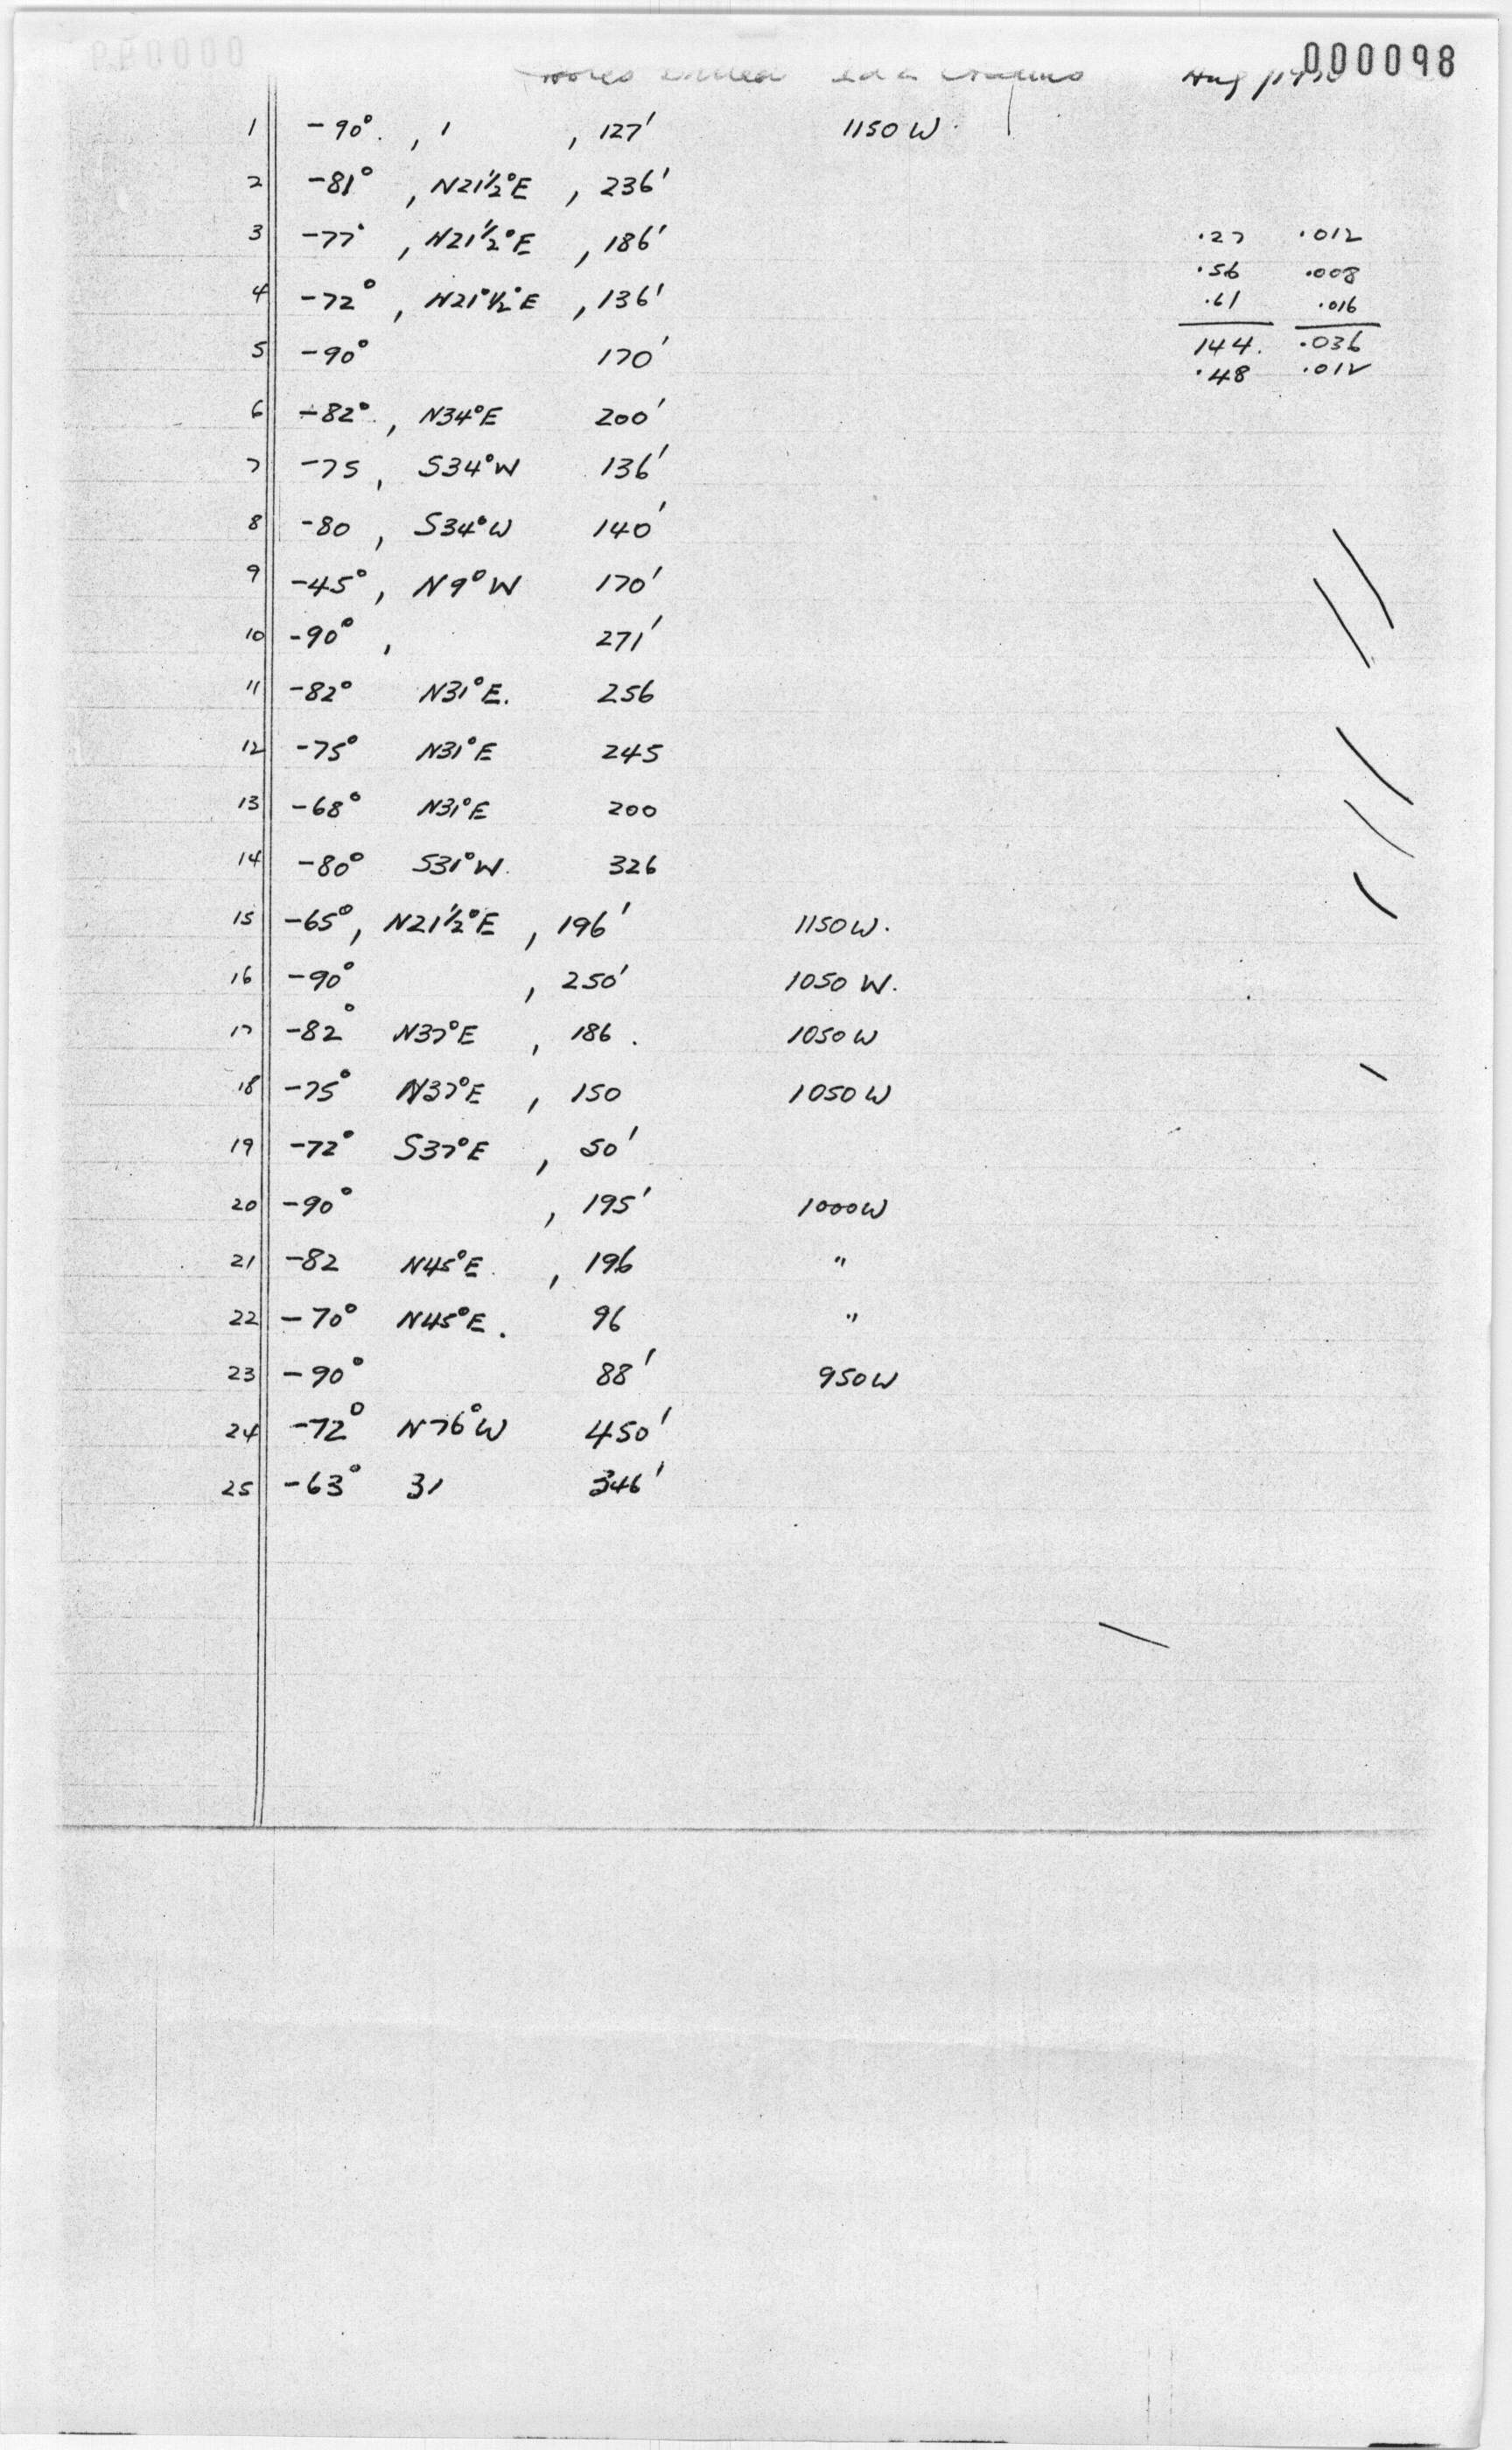 000098
Holes Drilled
Aug
1 -90°. , ' , 127' 1150 W.
2 -81° , N21½°E , 236'
3 -77° , N21½°E , 186' .27 .012
.56 .008
4 -72° , N21°½°E , 136' .61 .016
5 -90° 170' 144. .036
.48 .012
6 -82° , N34°E 200'
7 -75 , S34°W 136'
8 -80 , S34°W 140'
9 -45° , N9°W 170'
10 -90° , 271'
11 -82° N31°E. 256
12 -75° N31°E 245
13 -68° N31°E 200
14 -80° S31°W. 326
15 -65° , N21½°E , 196' 1150W.
16 -90° , 250' 1050 W.
17 -82° N37°E , 186 . 1050W
18 -75° N37°E , 150 1050W
19 -72° S37°E , 50'
20 -90° , 195' 1000W
21 -82 N45°E. , 196 "
22 -70° N45°E. 96 "
23 -90° 88' 950W
24 -72° N76°W 450'
25 -63° 31 346'